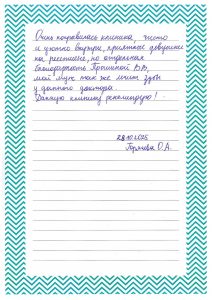 Очень понравилась клиника, чисто
и уютно внутри, приятные девушки
на рестшене, но отдельная
благодарность Прошиной В.В,
мой муж так же лечит зубы
у данного доктора.
Данную клинику рекомендую!
28.10.2025
Горячева О.А.